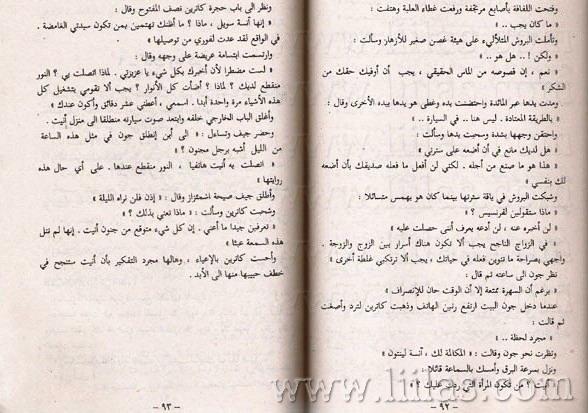 وفتحت اللفافة بأصابع مرتجفة ورفعت غطاء العلبة وهتفت :
« ما كان يجب .. »
وتأملت البروش المتلألىء على هيئة غصن صغير للأزهار وسألت :
« ولكن ! .. هل هو .. »
« نعم ، إن فصوصه من الماس الحقيقي ، يجب أن أوفيك حقك من
الشكر »
ومدت يدها عبر المائدة واحتضنت يده وغطى هو يدها بيده الأخرى وقال :
« بالطريقة المعتادة . ليس هنا .. في السيارة .. »
واحتقن وجهها بشدة وسحبت يدها وسألت :
« هل لديك مانع في أن أضعه على سترتي »
« هذا هو ما صنع من أجله . لكنني لن أفعل ما فعله صديقك بأن أضعه
لك بنفسي »
وشبكت البروش في ياقة سترتها بينما كان هو يهمس متسائلا :
« ماذا ستقولين لفرنسيس ؟ »
« لن أخبره عنه ، لن أدعه يعرف أنني حصلت عليه »
« في الزواج الناجح يجب ألا تكون هناك أسرار بين الزوج والزوجة .
واجهي بصراحة ما تنوين فعله في حياتك ، يجب ألا ترتكبي غلطة أخرى »
نظر جون الى ساعته ثم قال :
« برغم أن السهرة ممتعة إلا أن الوقت حان للإنصراف »
عندما دخل جون البيت ارتفع رنين الهاتف وذهبت كاترين لترد وأصغت
ثم قالت :
« مجرد لحظة .. »
ونظرت نحو جون وقالت : « المكالمة لك ، آنسة لينتون »
ونزل بسرعة البرق وأمسك بالسماعة قائلا :
« آنيت ؟ من تكون المرأة التي ردت عليك ؟ »
– ٩٢ –
ونظر الى باب حجرة كاترين نصف المفتوح وقال :
« إنها آنسة سويل ، ماذا ؟ ما أظنك تهتمين بمن تكون سيدتي الغامضة .
في الواقع لقد عدت لفوري من توصيلها »
وارتسمت ابتسامة عريضة على وجهه وقال :
« لست مضطرا لأن أخبرك بكل شيء يا عزيزتي . لماذا اتصلت بي ؟ النور
منقطع لديك ؟ لماذا ؟ أضأت كل الأنوار ؟ يجب ألا تقومي بتشغيل كل
هذه الأشياء مرة واحدة أبدا . اسمعي ، أعطني عشر دقائق وأكون عندك »
وأغلق الباب الخارجي خلفه وابتعد صوت سيارته منطلقا الى منزل آنيت .
وحضر جيف وتساءل : « الى أين إنطلق جون في مثل هذه الساعة
من الليل أشبه برجل مجنون ؟ »
« اتصلت به آنيت هاتفيا ، النور منقطع عندها . على أي حال هذه
روايتها »
وأطلق جيف صيحة اشمئزاز وقال : « إذن فلن نراه الليلة »
وشحبت كاترين وسألت : « ماذا تعني بذلك ؟ »
« تعرفين جيدا ما أعني . إن كل شيء متوقع من جنون آنيت . إنها لم تنل
هذه السمعة عبثا »
وأحست كاترين بالإعياء ، وهالها مجرد التفكير بأن آنيت ستنجح في
خطف حبيبها منها الى الأبد .
– ٩٣ –
www.liilas.com